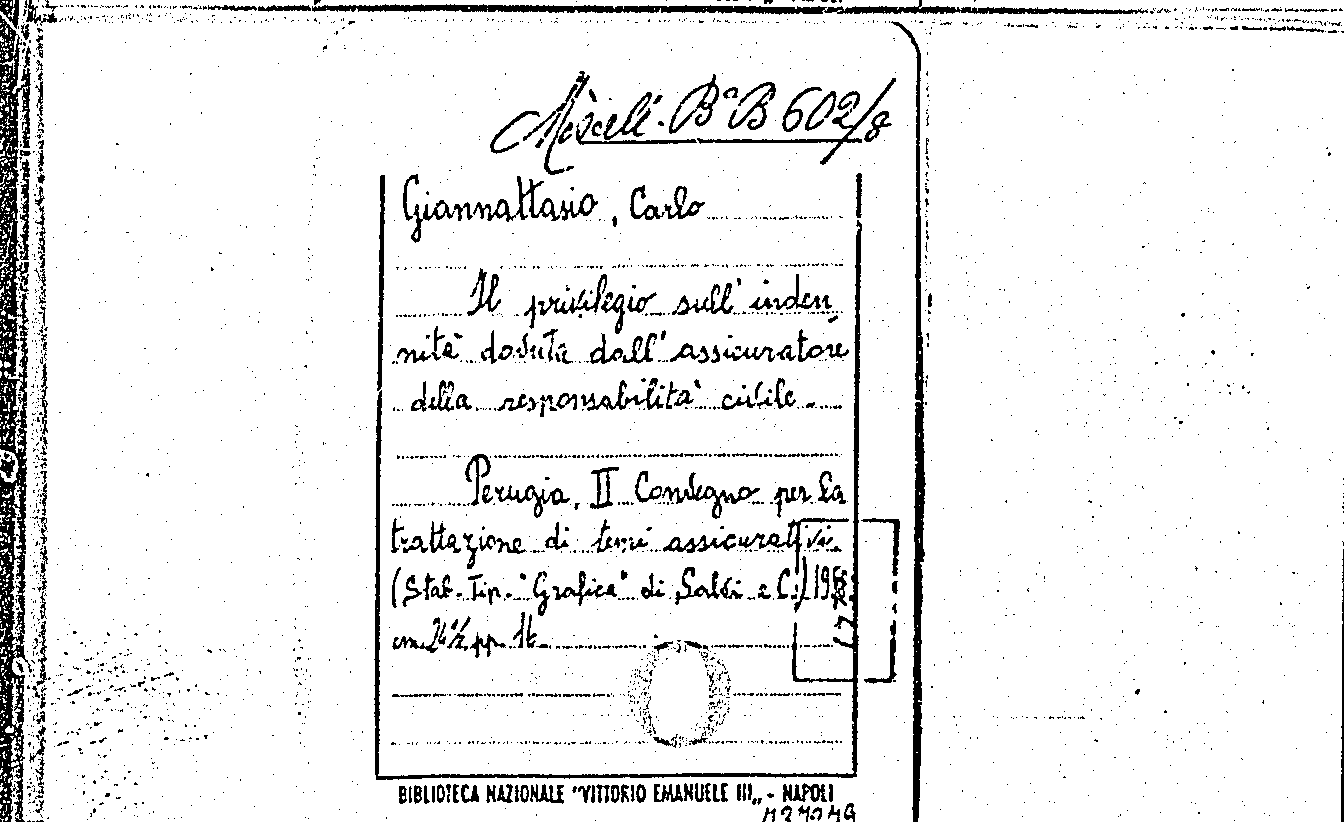 Miscell. Bª B 602/8
Giannattasio, Carlo
Il privilegio sull' inden
nità dovuta dall' assicuratore
della responsabilità civile.
Perugia, II Convegno per la
trattazione di temi assicurativi.
(Stab. Tip. "Grafica" di Salvi e C.)
cm. 24½ pp. 16
BIBLIOTECA NAZIONALE "VITTORIO EMANUELE III„ - NAPOLI